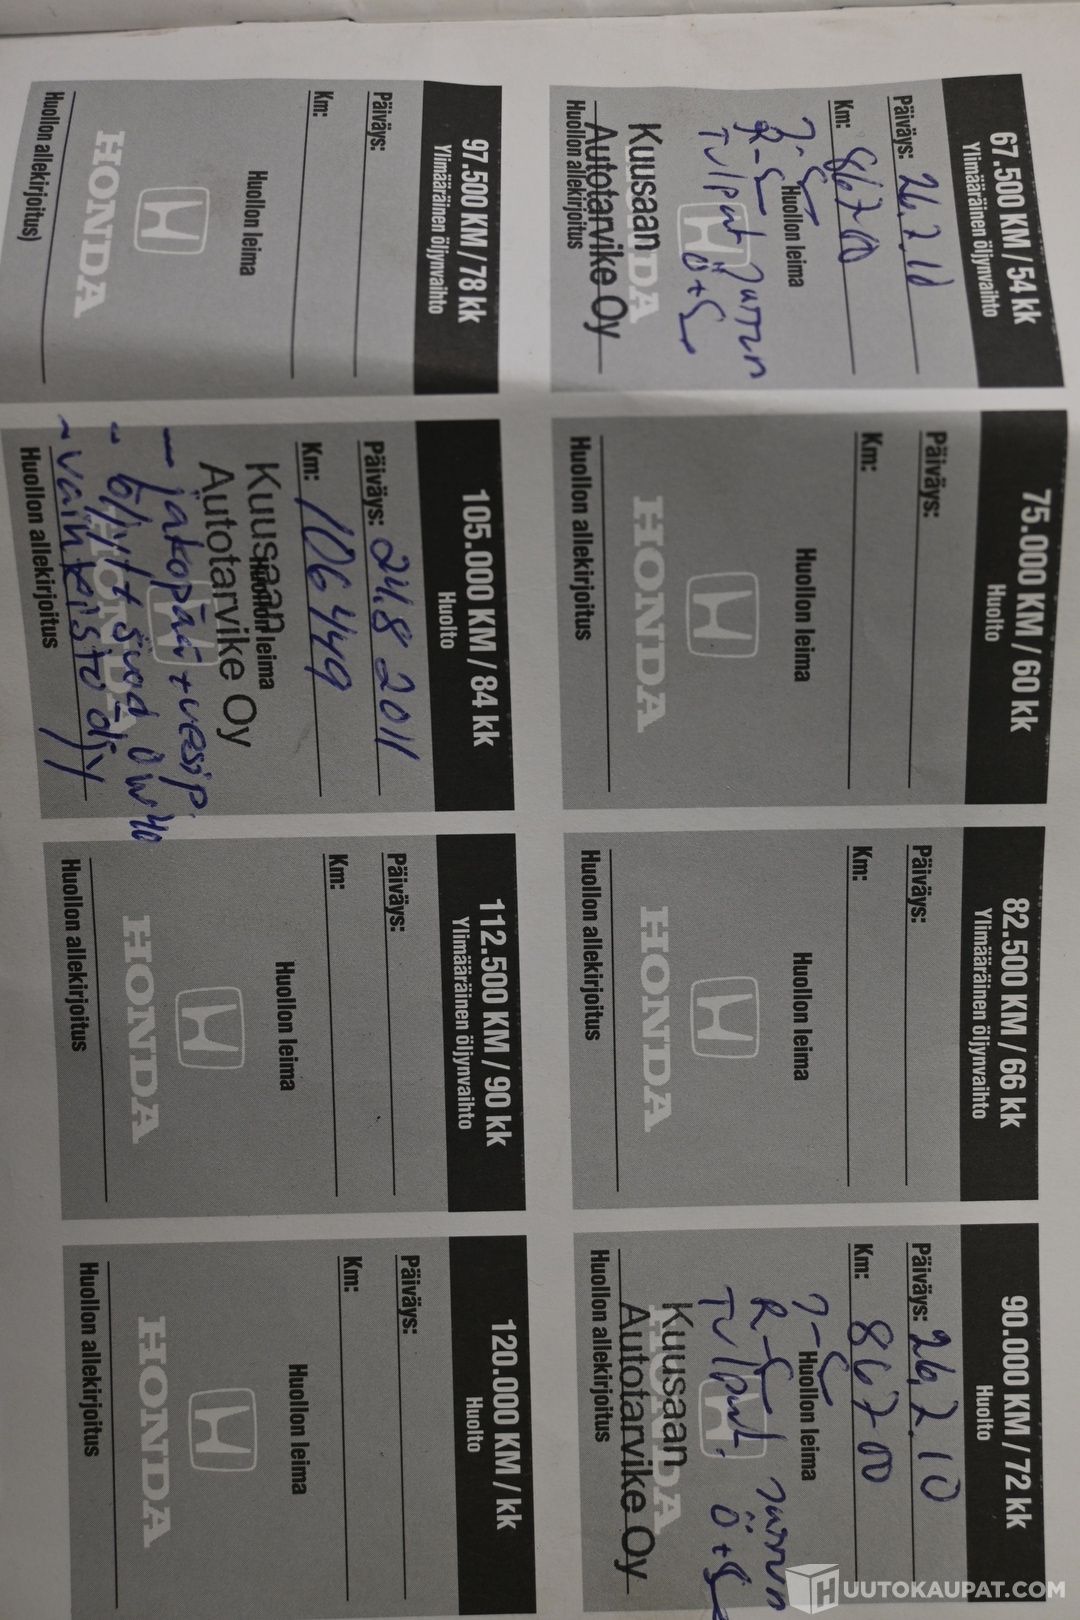 67.500 KM / 54 kk
Ylimääräinen öljynvaihto
Päiväys: 26.7.10
Km: 86700
Huollon leima
J-S
R-S Jarrun
Tulpat Ö+S
HONDA
Kuusaan
Autotarvike Oy
Huollon allekirjoitus
75.000 KM / 60 kk
Huolto
Päiväys:
Km:
Huollon leima
HONDA
Huollon allekirjoitus
82.500 KM / 66 kk
Ylimääräinen öljynvaihto
Päiväys:
Km:
Huollon leima
HONDA
Huollon allekirjoitus
90.000 KM / 72 kk
Huolto
Päiväys: 26.7.10
Km: 86700
Huollon leima
J-S
R-S Jarrun
Tulpat. Ö+S
HONDA
Kuusaan
Autotarvike Oy
Huollon allekirjoitus
97.500 KM / 78 kk
Ylimääräinen öljynvaihto
Päiväys:
Km:
Huollon leima
HONDA
Huollon allekirjoitus)
105.000 KM / 84 kk
Huolto
Päiväys: 24.8 2011
Km: 106449
Huollon leima
Kuusaan
Autotarvike Oy
- jakopää + vesip
- öljyt + suod 0W40
HONDA
- vaihteistoöljy
Huollon allekirjoitus
112.500 KM / 90 kk
Ylimääräinen öljynvaihto
Päiväys:
Km:
Huollon leima
HONDA
Huollon allekirjoitus
120.000 KM / kk
Huolto
Päiväys:
Km:
Huollon leima
HONDA
Huollon allekirjoitus
HUUTOKAUPAT.COM